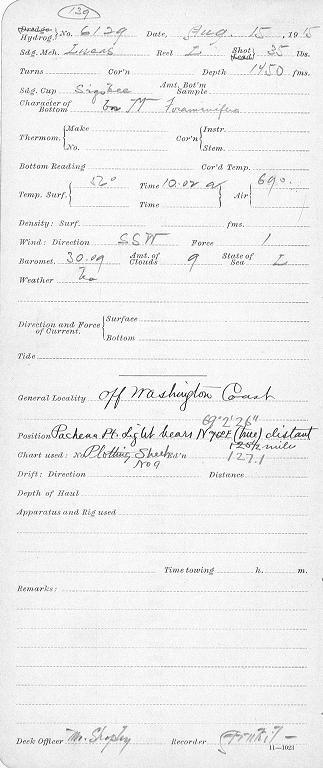 139
Dredge Hydrog. } No. 6129 Date, Aug. 15, 1915
Sdg. Mch. Lucas Reel L Shot Lead } 35 lbs.
Turns Cor'n Depth 1450 fms.
Sdg. Cup Sigsbee Amt. Bot'm Sample
Character of Bottom Foraminifera
Thermom. { Make Cor'n { Instr.
No. Stem.
Bottom Reading Cor'd Temp.
Temp. Surf. { Time 10.02 a Air } 69°.
Time
Density: Surf. fms.
Wind: Direction SSW Force 1
Baromet. 30.09 Amt. of Clouds 9 State of Sea L
Weather
Direction and Force of Current. { Surface
Bottom
Tide
General Locality off Washington Coast
69° 2' 26"
Position Pachena Pt. Light bears N 70° E (true) distant
120½ mile
Chart used: No Plotting Sheet Ed'n 127.1
No 9
Drift: Direction Distance
Depth of Haul
Apparatus and Rig used
Time towing h. m.
Remarks:
Deck Officer Mr. Shepley Recorder
11—1021